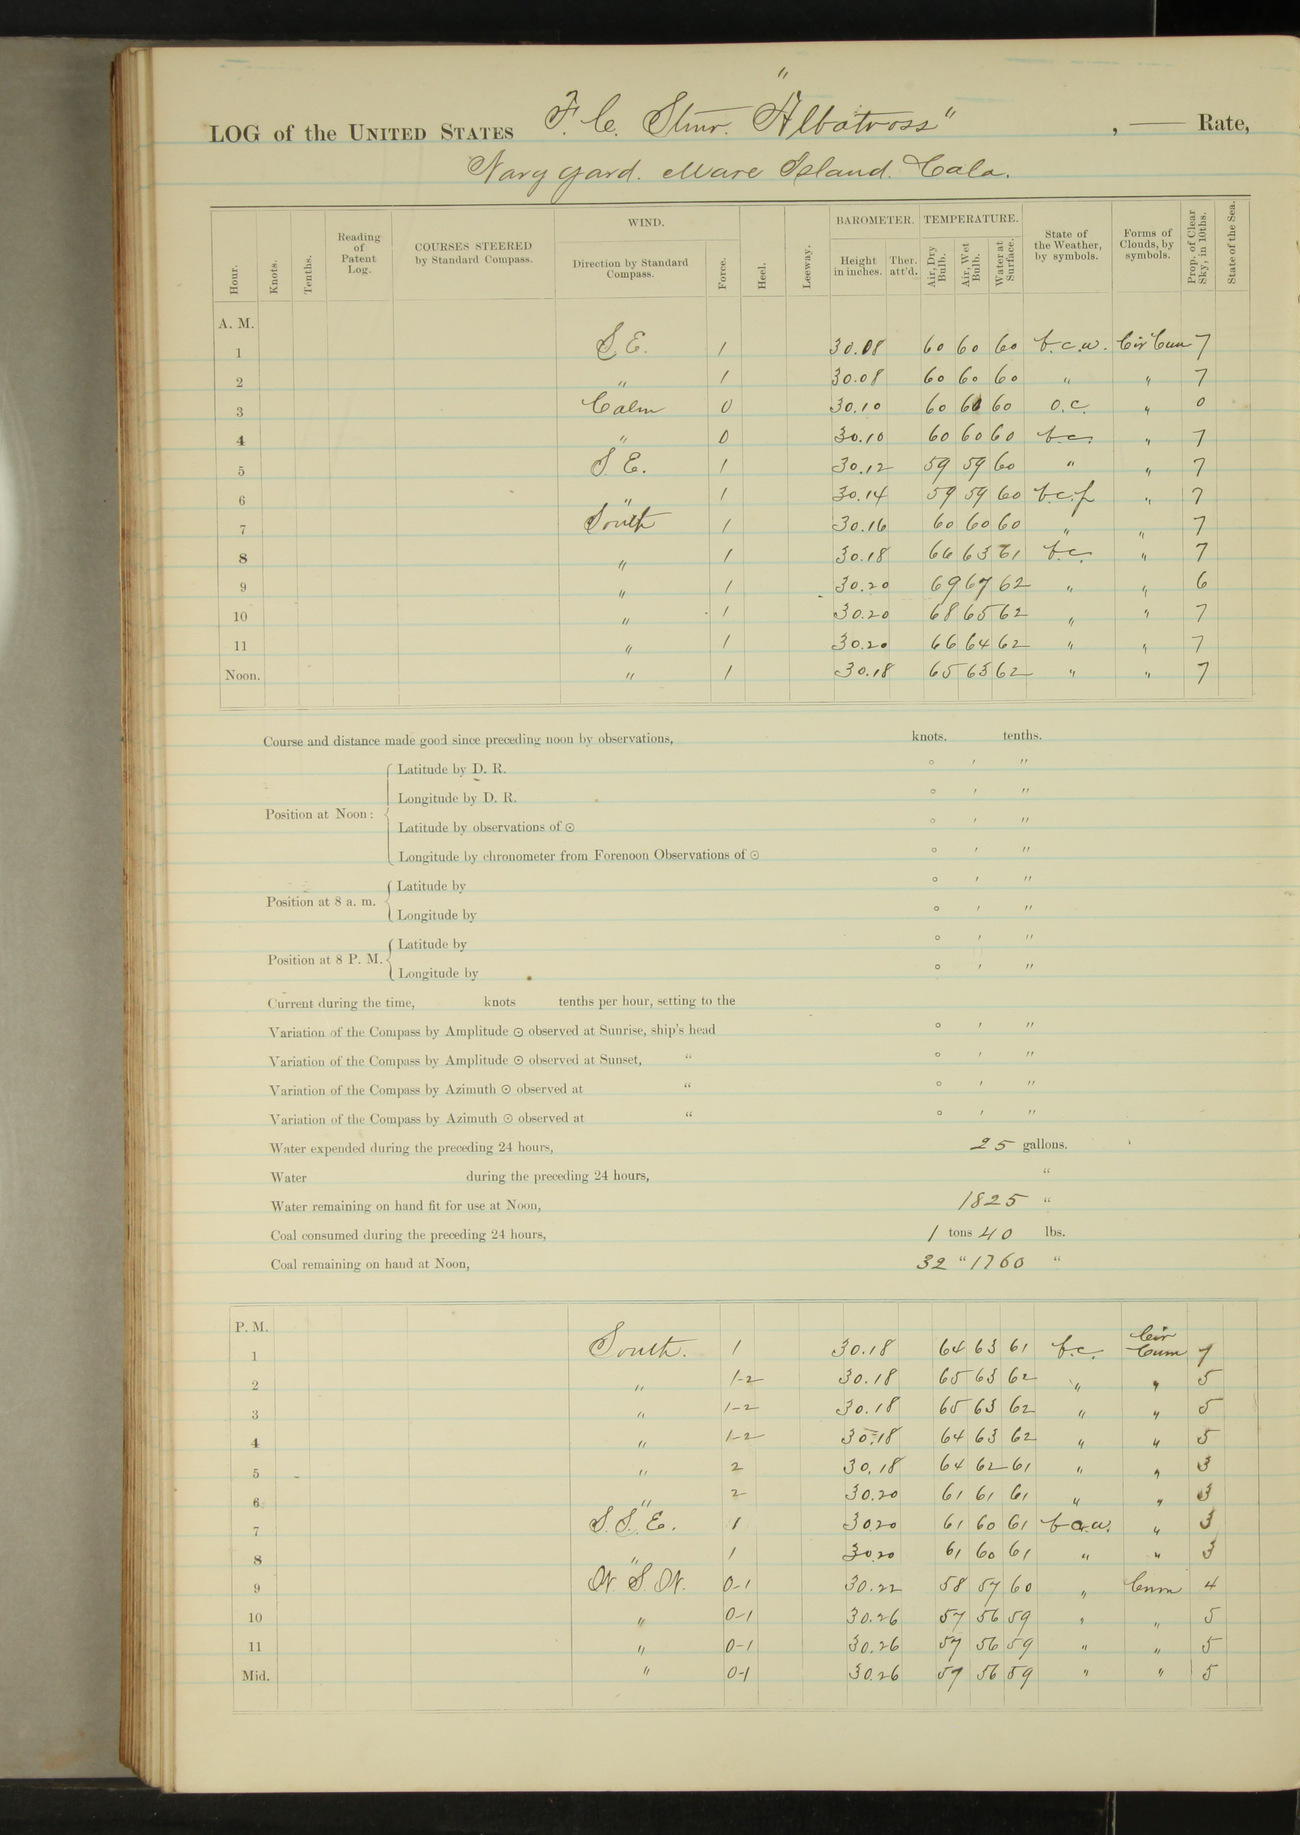 LOG of the UNITED STATES F. C. Stmr. "Albatross" , — Rate,
Navy Yard. Mare Island. Cala.
Hour. Knots. Tenths. Reading of Patent Log. COURSES STEERED by Standard Compass. WIND. Direction by Standard Compass. Force. Heel. Leeway. BAROMETER. Height in inches. Ther. att'd. TEMPERATURE. Air, Dry Bulb. Air, Wet Bulb. Water at Surface. State of the Weather, by symbols. Forms of Clouds, by symbols. Prop. of Clear Sky, in 10ths. State of the Sea.
A. M.
1 S.E. 1 30.08 60 60 60 b.c.w. Cir Cum 7
2 " 1 30.08 60 60 60 " " 7
3 Calm 0 30.10 60 60 60 o.c. " 0
4 " 0 30.10 60 60 60 b.c. " 7
5 S.E. 1 30.12 59 59 60 " " 7
6 " 1 30.14 59 59 60 b.c.f. " 7
7 South 1 30.16 60 60 60 " " 7
8 " 1 30.18 66 63 61 b.c. " 7
9 " 1 30.20 69 67 62 " " 6
10 " 1 30.20 68 65 62 " " 7
11 " 1 30.20 66 64 62 " " 7
Noon. " 1 30.18 65 63 62 " " 7
Course and distance made good since preceding noon by observations, knots. tenths.
Position at Noon: Latitude by D. R. ° ′ ″
Longitude by D. R. ° ′ ″
Latitude by observations of ☉ ° ′ ″
Longitude by chronometer from Forenoon Observations of ☉ ° ′ ″
Position at 8 a. m. Latitude by ° ′ ″
Longitude by ° ′ ″
Position at 8 P. M. Latitude by ° ′ ″
Longitude by ° ′ ″
Current during the time, knots tenths per hour, setting to the
Variation of the Compass by Amplitude ☉ observed at Sunrise, ship's head ° ′ ″
Variation of the Compass by Amplitude ☉ observed at Sunset, " ° ′ ″
Variation of the Compass by Azimuth ☉ observed at " ° ′ ″
Variation of the Compass by Azimuth ☉ observed at " ° ′ ″
Water expended during the preceding 24 hours, 25 gallons.
Water during the preceding 24 hours, "
Water remaining on hand fit for use at Noon, 1825 "
Coal consumed during the preceding 24 hours, 1 tons 40 lbs.
Coal remaining on hand at Noon, 32 " 1760 "
P. M.
1 South. 1 30.18 64 63 61 b.c. Cir Cum 7
2 " 1-2 30.18 65 63 62 " " 5
3 " 1-2 30.18 65 63 62 " " 5
4 " 1-2 30.18 64 63 62 " " 5
5 " 2 30.18 64 62 61 " " 3
6 " 2 30.20 61 61 61 " " 3
7 S.S.E. 1 30.20 61 60 61 b.c.w. " 3
8 " 1 30.20 61 60 61 " " 3
9 W.S.W. 0-1 30.22 58 57 60 " Cum 4
10 " 0-1 30.26 57 56 59 " " 5
11 " 0-1 30.26 57 56 59 " " 5
Mid. " 0-1 30.26 57 56 59 " " 5